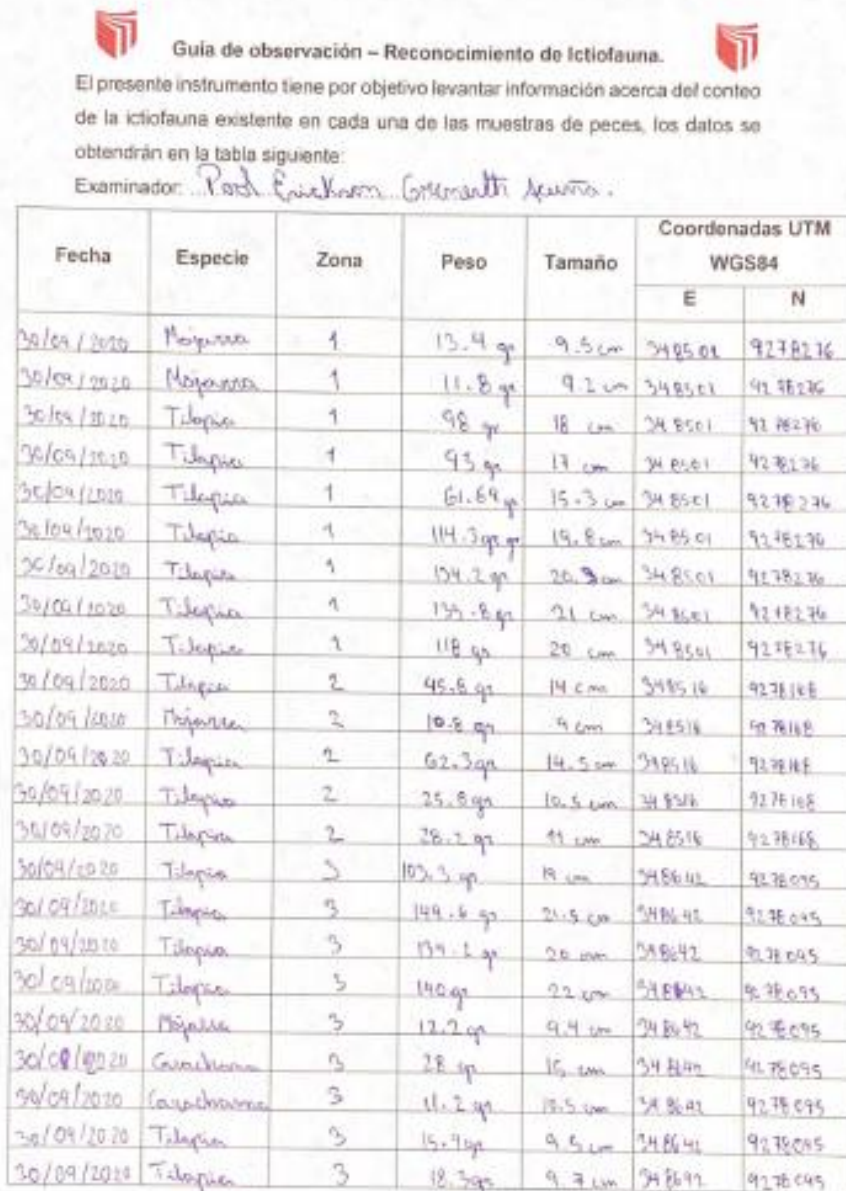 Guía de observación – Reconocimiento de Ictiofauna.
El presente instrumento tiene por objetivo levantar información acerca del conteo
de la ictiofauna existente en cada una de las muestras de peces, los datos se
obtendrán en la tabla siguiente:
Examinador:
Coordenadas UTM
Fecha Especie Zona Peso Tamaño WGS84
E N
30/09/2020 Mojarra 1 13.4 gr 9.5 cm 348501 9278276
30/09/2020 Mojarra 1 11.8 gr 9.2 cm 348501 9278276
30/09/2020 Tilapia 1 98 gr 18 cm 348501 9278276
30/09/2020 Tilapia 1 93 gr 17 cm 348501 9278276
30/09/2020 Tilapia 1 61.69 gr 15.3 cm 348501 9278276
30/09/2020 Tilapia 1 114.3 gr 19.8 cm 348501 9278276
30/09/2020 Tilapia 1 134.2 gr 348501 9278276
30/09/2020 Tilapia 1 21 cm 348501 9278276
30/09/2020 Tilapia 118 gr 20 cm 348501 9278276
30/09/2020 Tilapia 2 45.8 gr 14 cm 348516 9278168
30/09/2020 Mojarra 2 10.8 gr 9 cm 348516 9278168
30/09/2020 Tilapia 2 62.3 gr 14.5 cm 348516 9278168
30/09/2020 Tilapia 2 25.8 gr 10.5 cm 348516 9278168
30/09/2020 Tilapia 2 28.2 gr 11 cm 348516 9278168
30/09/2020 Tilapia 3 103.3 gr 19 cm 348642 9278095
30/09/2020 Tilapia 3 149.6 gr 21.5 cm 348642 9278095
30/09/2020 Tilapia 3 20 cm 348642 9278095
30/09/2020 Tilapia 3 140 gr 22 cm 348642 9278095
30/09/2020 Mojarra 3 12.2 gr 9.4 cm 348642 9278095
30/09/2020 Carachama 3 28 gr 15 cm 348642 9278095
30/09/2020 Carachama 3 11.2 gr 348642 9278095
30/09/2020 Tilapia 3 15.4 gr 9.5 cm 348642 9278095
30/09/2020 Tilapia 3 18.3 gr 9.7 cm 348642 9278095